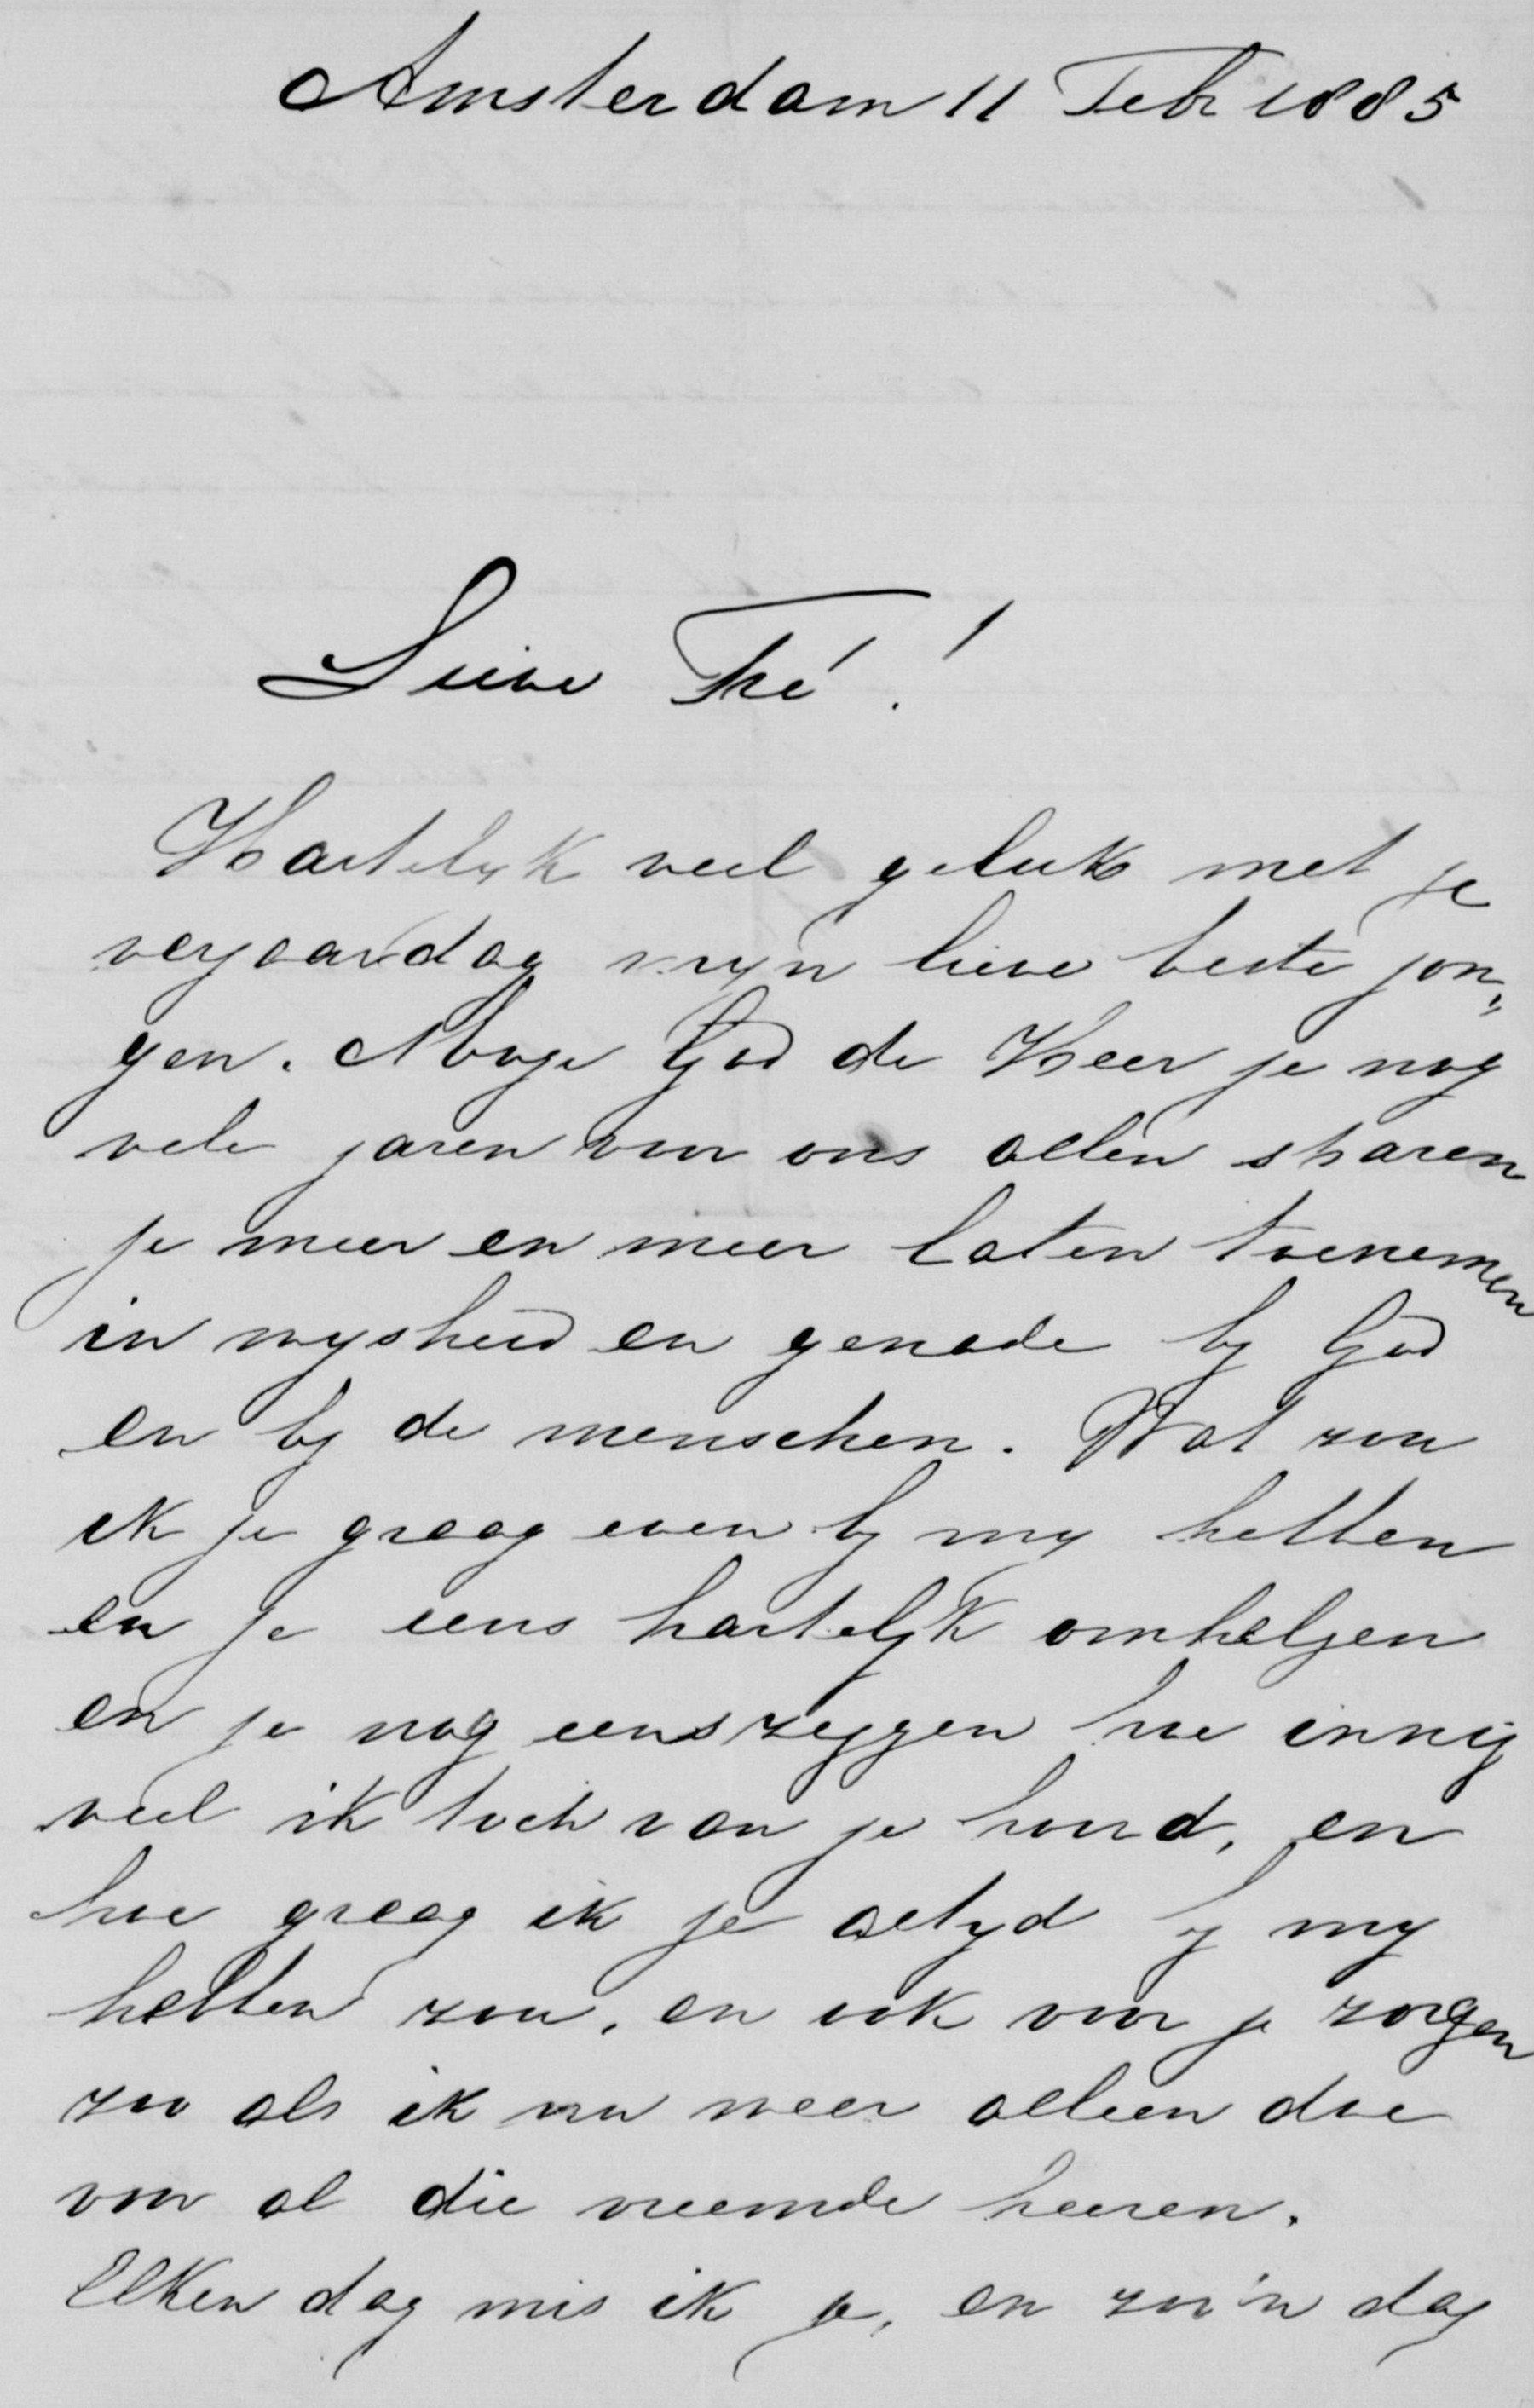 Amsterdam 11 Febr 1885
Lieve Thé!
Hartelyk veel geluk met je
verjaardag myn lieve beste jon„
gen. Moge God de Heer je nog
vele jaren voor ons allen sparen
je meer en meer laten toenemen
in wysheid en genade by God
en by de menschen. Wat zou
ik je graag even by my hebben
en je eens hartelyk omhelzen
en je nog eens zeggen hoe innig
veel ik toch van je houd, en
hoe graag ik je altyd by my
hebben zou, en ook voor je zorgen
zoo als ik nu weer alleen doe
voor al die vreemde heeren.
Elken dag mis ik je, en zoo'n dag